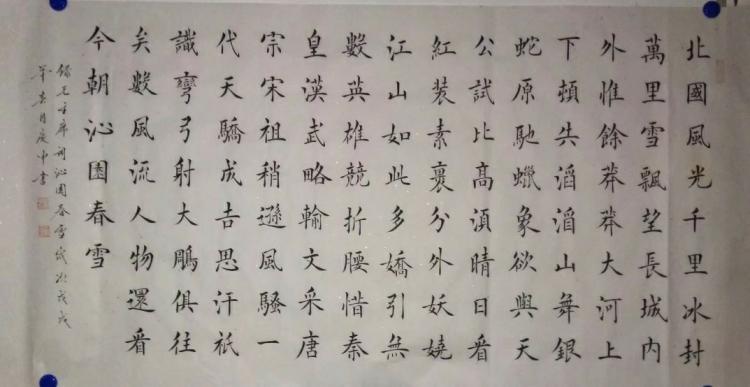 北國風光千里冰封
萬里雪飄望長城内
外惟餘莽莽大河上
下頓失滔滔山舞銀
蛇原馳蠟象欲與天
公試比高須晴日看
紅裝素裹分外妖嬈
江山如此多嬌引無
數英雄競折腰惜秦
皇漢武略輸文采唐
宗宋祖稍遜風騷一
代天驕成吉思汗祇
識彎弓射大鵰俱往
矣數風流人物還看
今朝沁園春雪
錄毛主席詞沁園春雪歲次戊戌
年月書